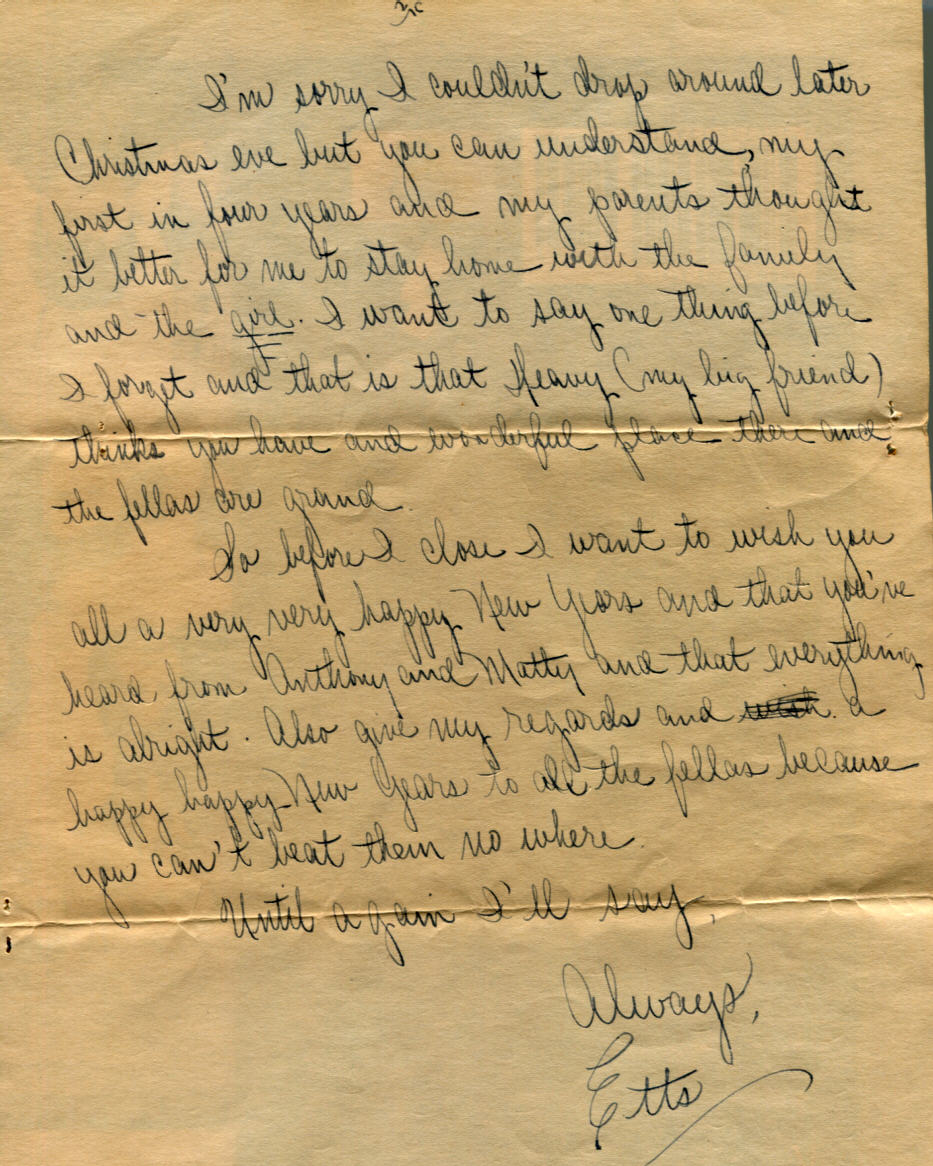 I'm sorry I couldn't drop around later
Christmas eve but you can understand, my
first in four years and my parents thought
it better for me to stay home with the family
and the girl. I want to say one thing before
I forget and that is that Heavy (my big friend)
thinks you have and wonderful place there and
the fellas are grand.
So before I close I want to wish you
all a very very happy New Years and that you've
heard from Anthony and Matty and that everything
is alright. Also give my regards and a
happy happy New Years to all the fellas because
you can't beat them no where.
Until again I'll say,
Always,
Etts